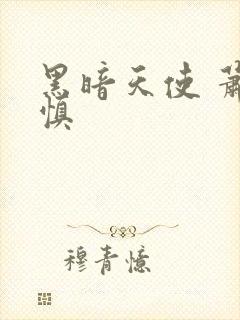 黑暗天使 萧
慎
穆青憶